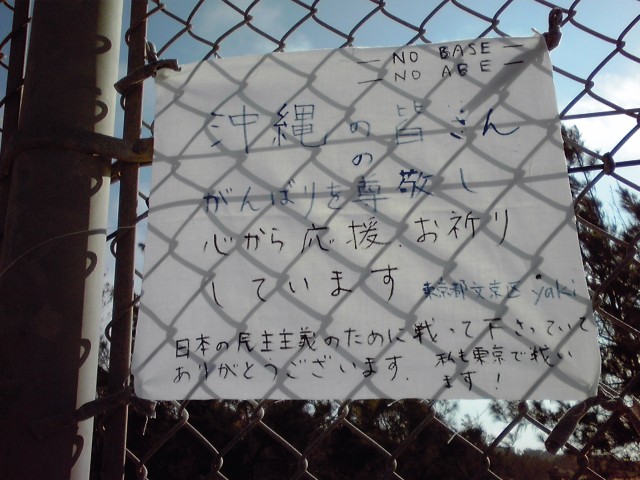 NO BASE
NO ABE
沖縄の皆さん
の
がんばりを尊敬し
心から応援、お祈り
しています
東京都文京区 yaki
日本の民主主義のために戦って下さっていて
ありがとうございます.
私も東京で戦い
ます!